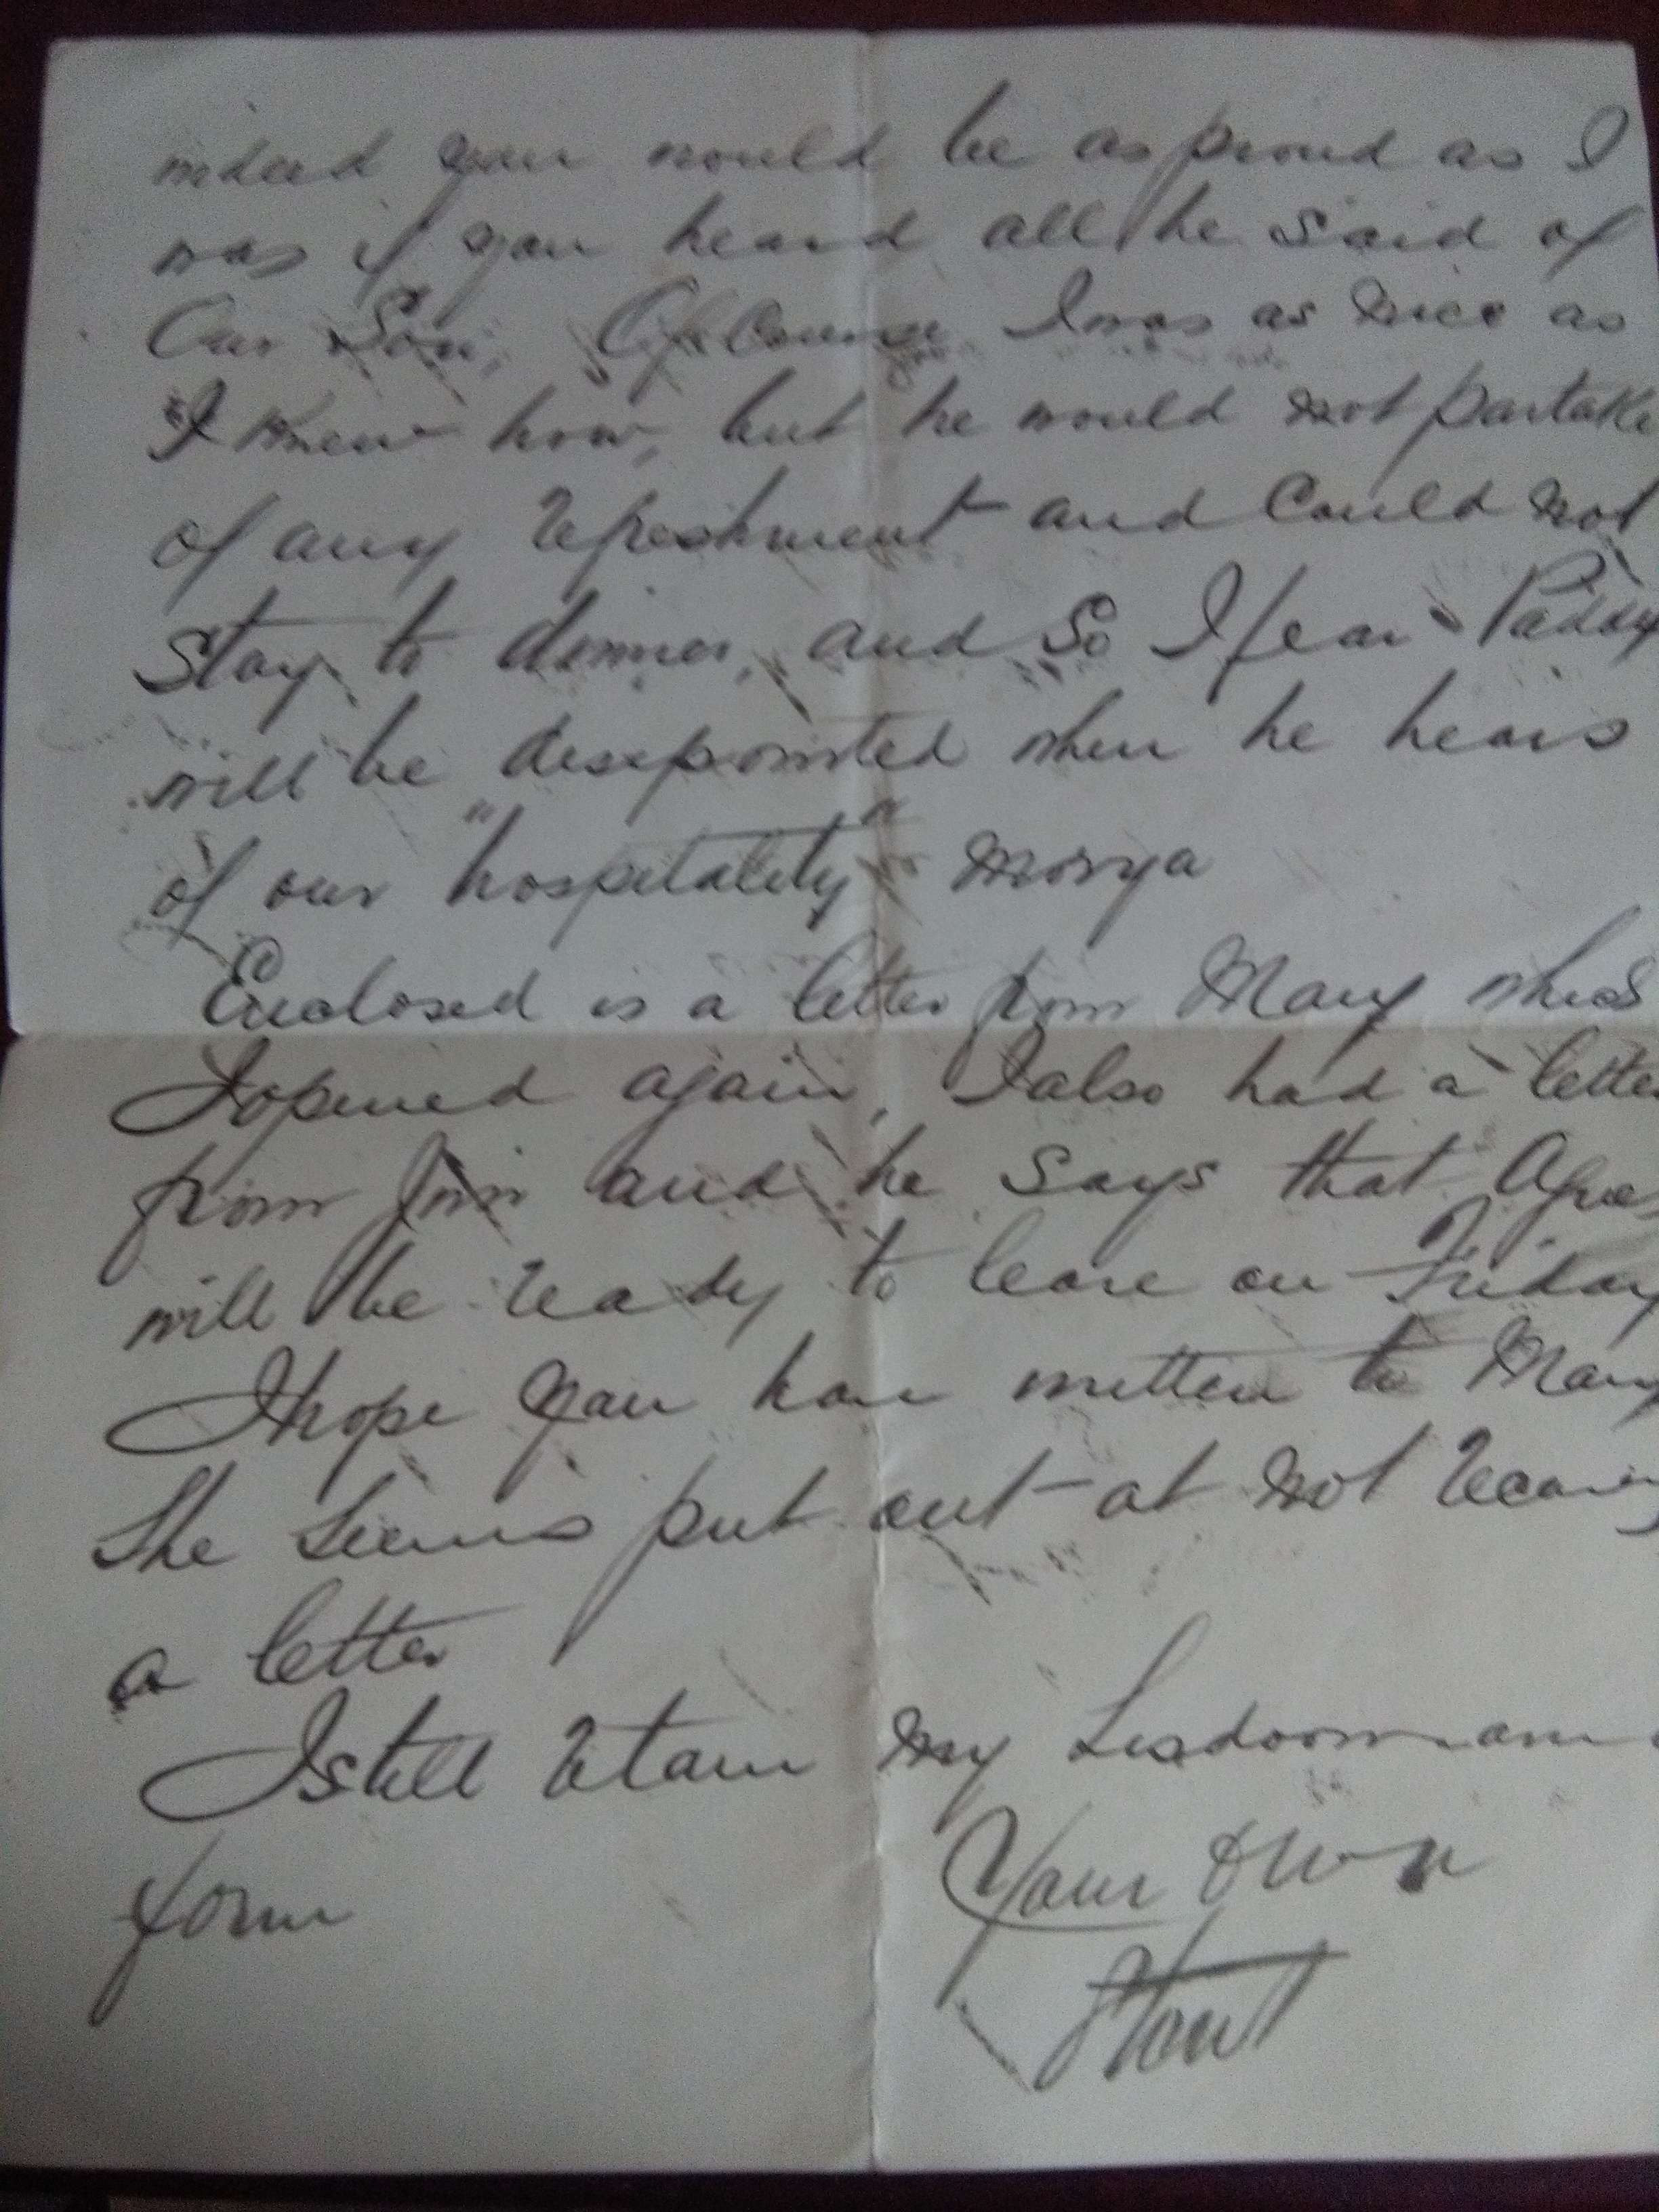 indeed you would be as proud as I
was if you heard all he Said of
Our Son, Of Course I was as nice as
I knew how, but he would not partake
of any refreshment and Could not
Stay to dinner, and So I fear Paddy
will be disapointed when he hears
of our "hospitality" Morya
Enclosed is a letter from Mary which
I opened again, I also had a letter
from Jim and he Says that Agnes
will be ready to leave on Friday
I hope you have written to Mary
She Seems put out at not
a letter
I still retain my
form Your Own